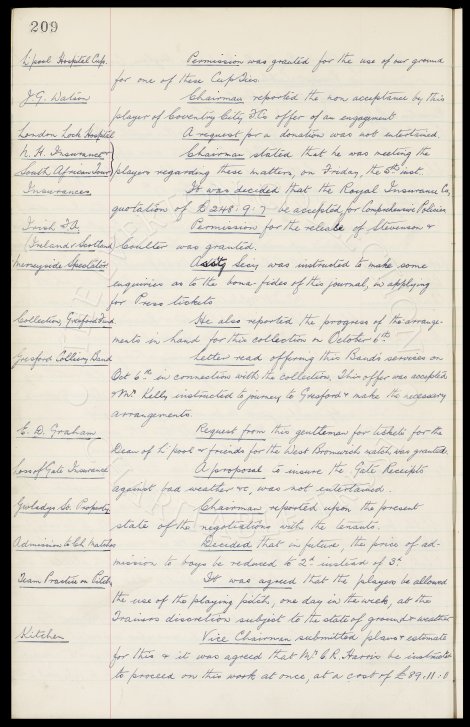 209
L'pool Hospital Cup. Permission was granted for the use of our ground
for one of these Cup Ties.
J.G. Watson Chairman reported the non acceptance by this
player of Coventry City F.Cs offer of an engagement
London Lock Hospital A request for a donation was not entertained.
N. H. Insurance & Chairman stated that he was meeting the
South African Tour players regarding these matters, on Friday, the 5th inst.
Insurances It was decided that the Royal Insurance Co,
quotation of £248:9:7 be accepted for Comprehensive Policies
Irish F.A. Permission for the release of Stevenson &
(Ireland v Scotland) Coulter was granted.
Merseyside Spectator Secy was instructed to make some
enquiries as to the bona-fides of this journal, in applying
for Press tickets
Collection, Gresford Fund He also reported the progress of the arrange-
ments in hand for this collection on October 6th.
Gresford Colliery Band Letter read offering this Band's services on
Oct 6th in connection with the collection. This offer was accepted
& Mr Kelly instructed to journey to Gresford & make the necessary
arrangements.
E. D. Graham Request from this gentleman for tickets for the
Dean of L'pool & friends for the West Bromwich match was granted.
Loss of Gate Insurance A proposal to insure the Gate Receipts
against bad weather &c, was not entertained.
Gwladys St. Property Chairman reported upon the present
state of the negotiations with the tenants.
Admission to C.L. Matches Decided that in future, the price of ad-
mission to boys be reduced to 2d instead of 3d.
Team Practice on Pitch It was agreed that the players be allowed
the use of the playing pitch, one day in the week, at the
Trainers discretion subject to the state of ground & weather
Kitchen Vice Chairman submitted plans & estimate
for this & it was agreed that Mr C.R. Harris be instructed
to proceed on this work at once, at a cost of £89.11.0